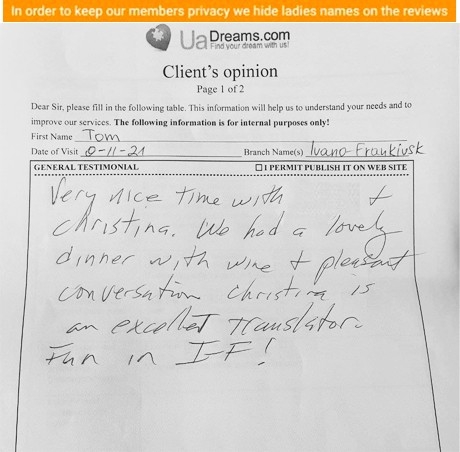 In order to keep our members privacy we hide ladies names on the reviews
UaDreams.com
Find your dream with us!
Client's opinion
Page 1 of 2
Dear Sir, please fill in the following table. This information will help us to understand your needs and to
improve our services. The following information is for internal purposes only!
First Name Tom
Date of Visit 9-11-21 Branch Name(s) Ivano-Frankivsk
GENERAL TESTIMONIAL ☐ I PERMIT PUBLISH IT ON WEB SITE
Very nice time with +
Christina. We had a lovely
dinner with wine + pleasant
conversation Christina is
an excellet translator.
Fun in I-F!